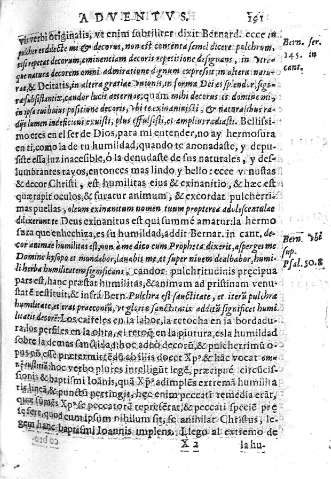 ADVENTVS. 191
vt verbi originalis, vt enim subtiliter dixit Bernard. ecce in
pulcher es dilecte mi & decorus, non est contenta semel dicere pulchrum,
eis repetat decorum, eminentiam decoris repetitione designans, in vtra-
que natura decorem omni admiratione dignum expresit, in altera natu-
ra, & Deitatis, in altera gratia, in forma Dei es splendor & figu-
ra substantiæ, candor lucis æternæ; quam mihi decorus es domine mi,
in ipsa tui huius positione decoris, vbi te exinanisti, & naturalibus ra-
dijs lumen indeficiens exuisti, plus effulsisti, & amplius radiasti. Bellissi-
mo eres en el ser de Dios, para mi entender, no ay hermosura
en ti, como la de tu humildad, quando te anonadaste, y depu-
siste essa luz inaccesible, ò la denudaste de sus naturales, y des-
lumbrantes rayos, entonces mas lindo y bello: ecce venustas
& decor Christi, est humilitas eius & exinanitio, & hæc est
quæ rapit oculos, & furatur animum, & excordat pulcherri-
mas puellas, oleum exinanitum nomen tuum propterea adulescentulæ
dilexerunt te Deus exinanitus est qui summè amatur: la hermo
sura que enhechiza, es su humildad, addit Bernar. in cant. de-
cor animæ humilitas est, non à me dico cum Propheta dixerit, asperges me
Domine hysopo et mundabor, lauabis me, et super niuem dealbabor, humi-
li herba humilitatem significans; candor pulchritudinis præcipua
pars est, hanc humilitas, & animam ad pristinam venus-
tatè restituit, & infrà Bern. Pulchra est sanctitate, et iterũ pulchra
humilitate, et eras præcorũ, vt gloriæ sanctitatis additũ significet humili
tatis decorẽ: Los caireles en la labor, la retocha en la borda-
tura los perfiles en la obra, el retoque en la pintura, es la humildad
sobre la de mas sanctidad; hoc adeo decorũ, & pulcherrimũ o-
pus nõ esse prætermittẽdũ abs illis docet Xp̃s & hæc vocat omnẽ
iustitiã: hoc verbo plures intelligũt legẽ, præcipuè circuci-
sionis & baptismi Ioãnis, quã Xp̃s adimplẽs extremã humilita
tis lineã, & punctũ pertingit, hæc enim peccati remedia erãt,
quæ sumẽs Xp̃s se peccatorẽ repræsẽtat, & peccati speciẽ præ
se ferre, quod cum ipsum nihilum sit, se anihilat Christus, le-
gem hanc baptismi Ioannis implens. Llego al extremo de
X 2 la hu-
Bern. ser.
145. in
cant.
Bern. vbi
sup.
Psal. 50.8